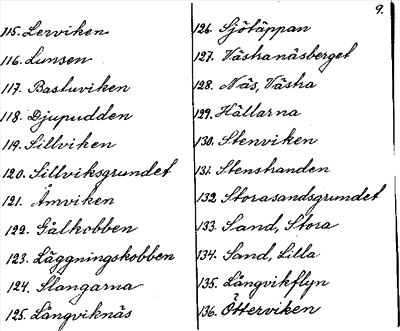 9.
115. Lerviken
116. Lunsen
117. Bastuviken
118. Djupudden
119. Sillviken
120. Sillviksgrundet
121. Åmviken
122. Själkobben
123. Läggningskobben
124. Slangarna
125. Långviknäs
126. Sjötäppan
127. Västranäsberget
128. Näs, Västra
129. Hällarna
130. Stenviken
131. Stenstranden
132. Storasandsgrundet
133. Sand, Stora
134. Sand, Lilla
135. Långvikflyn
136. Ötterviken